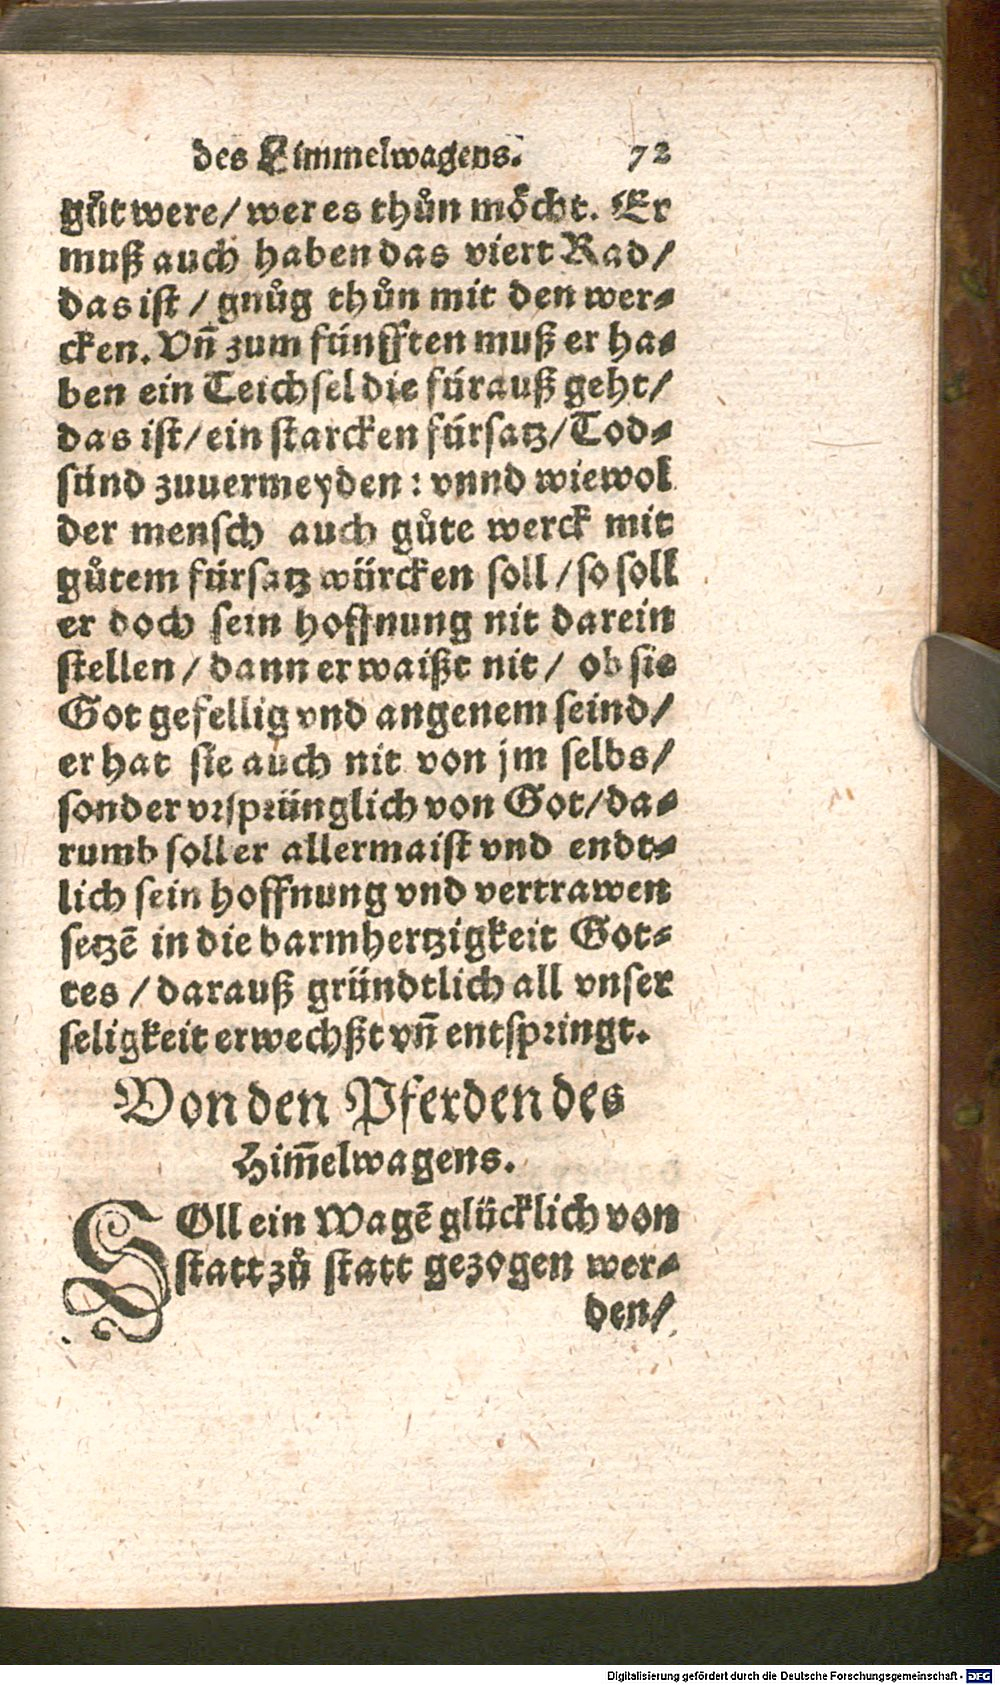 des Himmelwagens. 72
gůt were / wer es thůn möcht. Er
muß auch haben das viert Rad /
das ist / gnůg thůn mit den wer⸗
cken. Vñ zum fünfften muß er ha⸗
ben ein Teichsel die fürauß geht /
das ist / ein starcken fürsatz / Tod⸗
sünd zuuermeyden : vnnd wiewol
der mensch auch gůte werck mit
gůtem fürsatz würcken soll / so soll
er doch sein hoffnung nit darein
stellen / dann er waißt nit / ob sie
Got gefellig vnd angenem seind /
er hat sie auch nit von jm selbs /
sonder vrsprünglich von Got / da⸗
rumb soll er allermaist vnd endt⸗
lich sein hoffnung vnd vertrawen
setzē in die barmhertzigkeit Got⸗
tes / darauß gründtlich all vnser
seligkeit erwechßt vñ entspringt.
Von den Pferden des
Him̄elwagens.
SOll ein Wagē glücklich von
statt zů statt gezogen wer⸗
den /
Digitalisierung gefördert durch die Deutsche Forschungsgemeinschaft - DFG